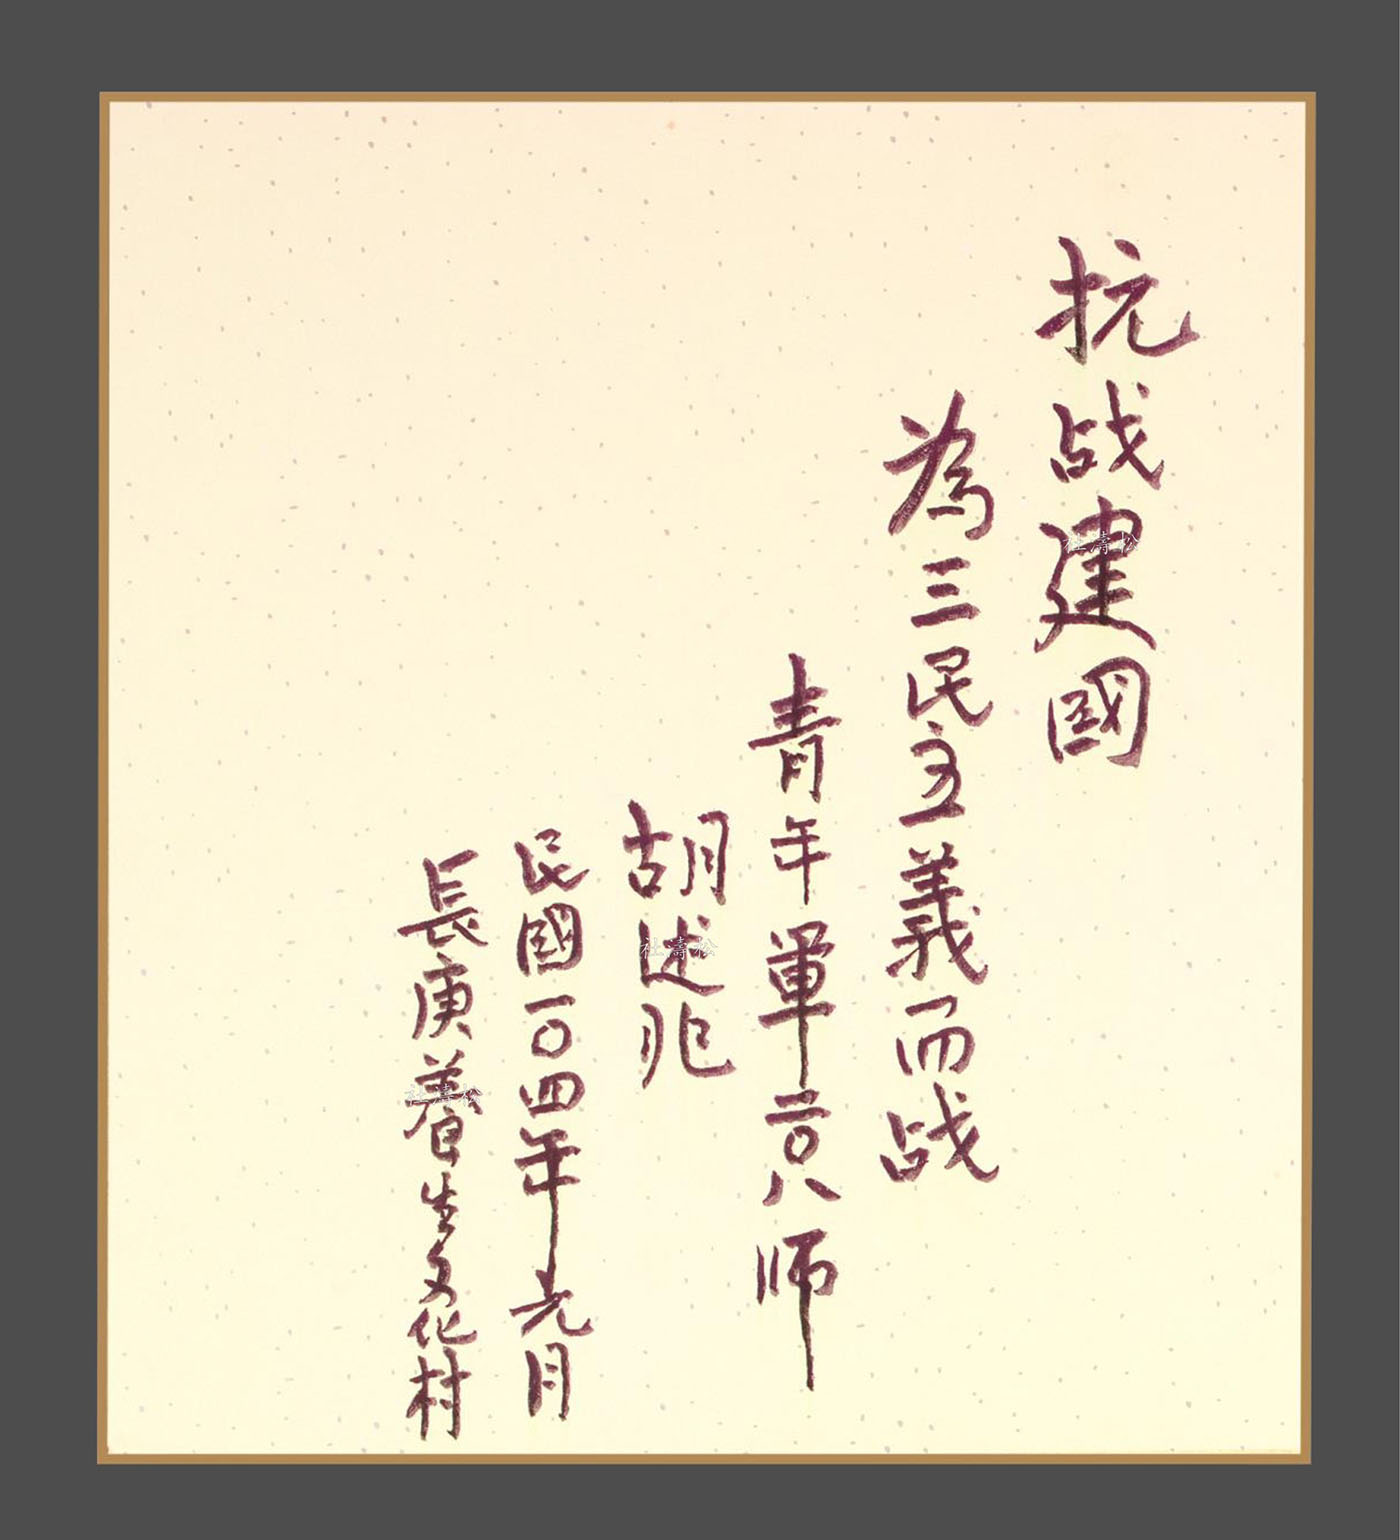 抗战建國
為三民主義而战
青年軍二〇八师
胡述兆
民國一〇四年元月
長庚養生文化村